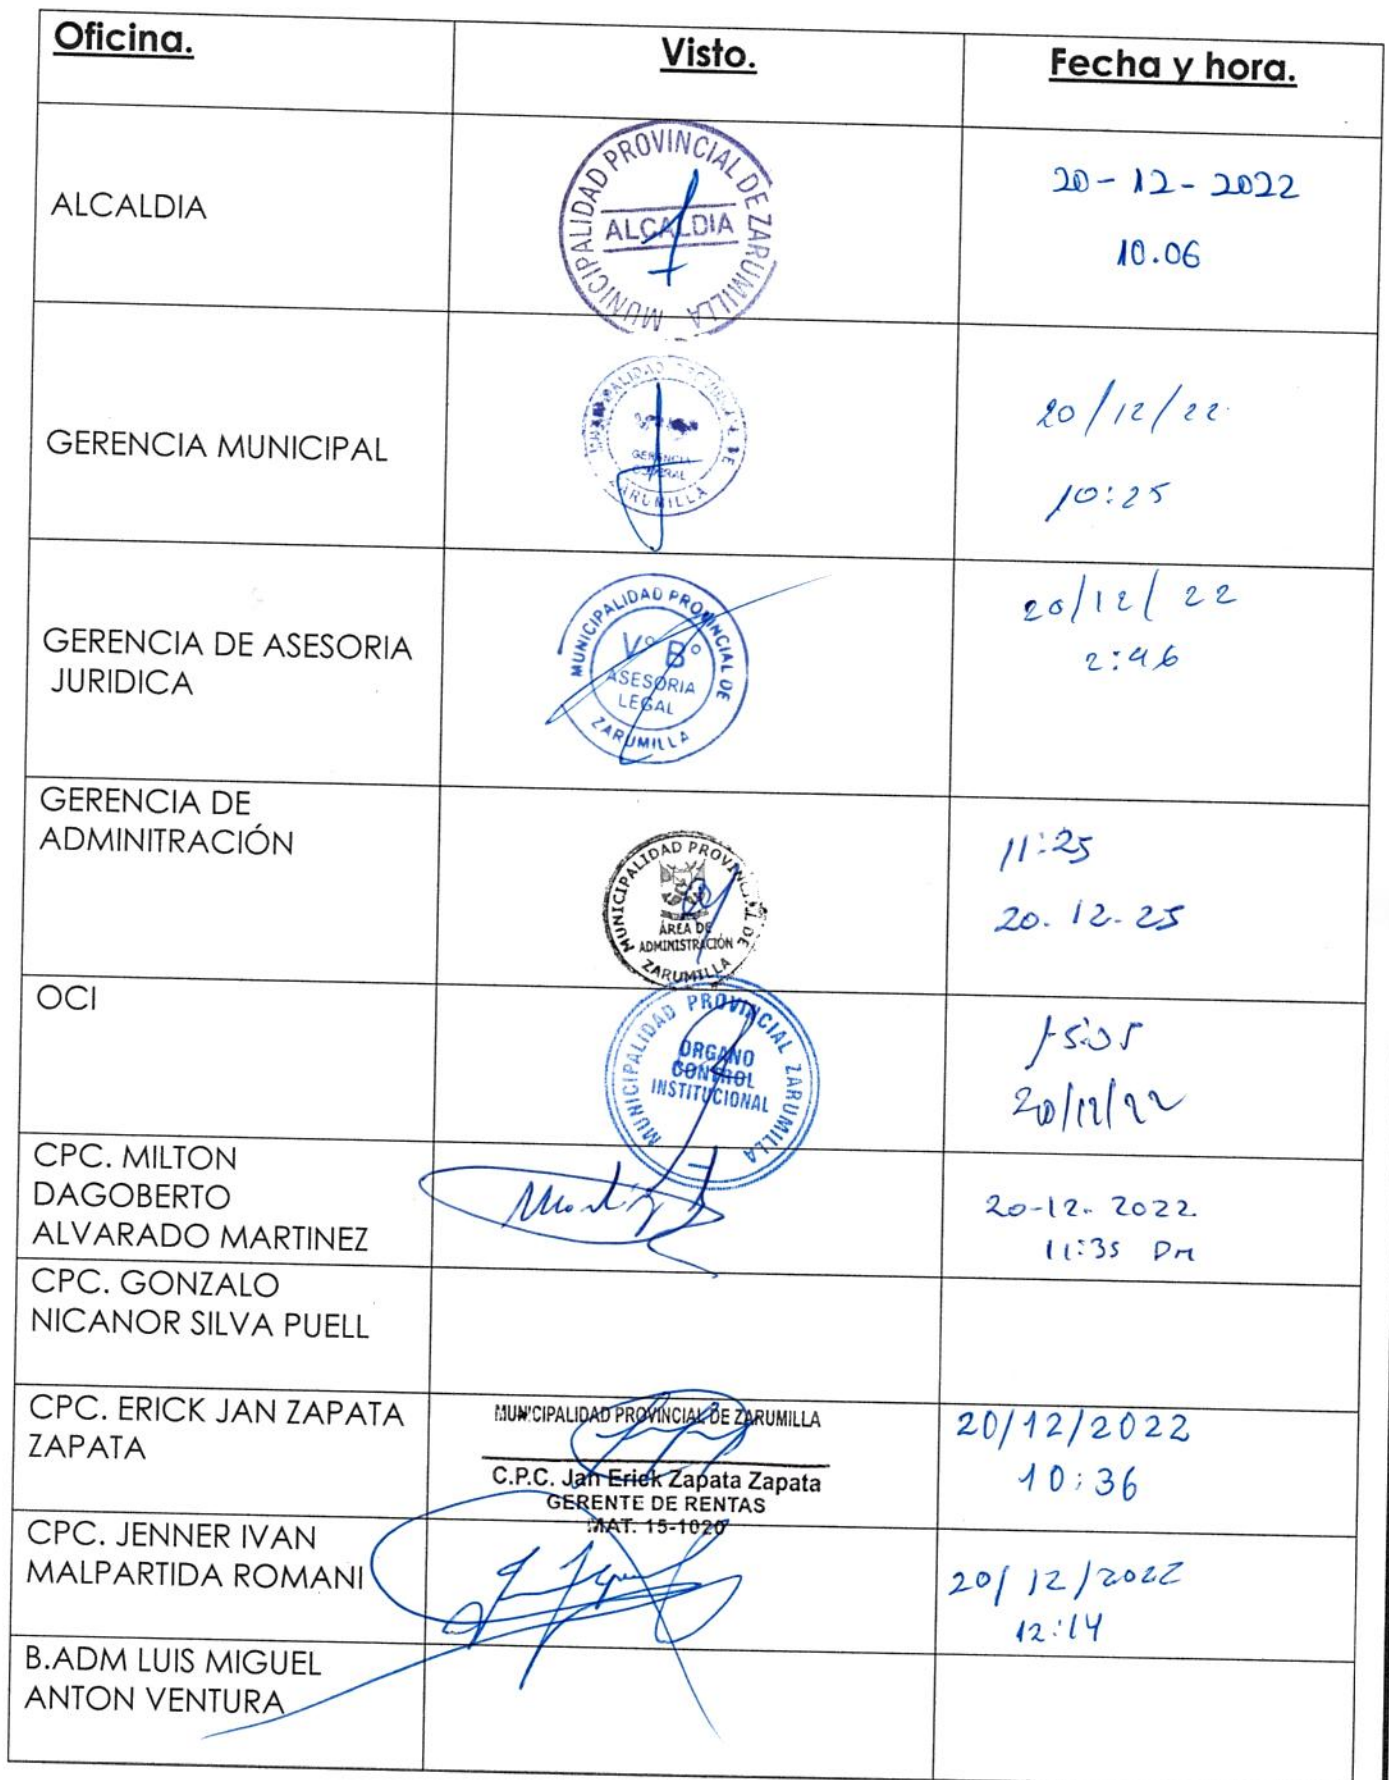 Oficina.
Visto.
Fecha y hora.
ALCALDIA
MUNICIPALIDAD PROVINCIAL DE ZARUMILLA
ALCALDIA
20-12-2022
10.06
GERENCIA MUNICIPAL
GERENCIA
ZARUMILLA
20/12/22
10:25
GERENCIA DE ASESORIA
JURIDICA
MUNICIPALIDAD PROVINCIAL DE
V° B°
ASESORIA
LEGAL
ZARUMILLA
20/12/22
2:46
GERENCIA DE
ADMINITRACIÓN
MUNICIPALIDAD PROVINCIAL DE
ÁREA DE
ADMINISTRACIÓN
ZARUMILLA
11:25
20.12-25
OCI
MUNICIPALIDAD PROVINCIAL ZARUMILLA
ORGANO
CONTROL
INSTITUCIONAL
20/12/22
CPC. MILTON
DAGOBERTO
ALVARADO MARTINEZ
20-12-2022
11:35
CPC. GONZALO
NICANOR SILVA PUELL
CPC. ERICK JAN ZAPATA
ZAPATA
MUNICIPALIDAD PROVINCIAL DE ZARUMILLA
C.P.C. Jan Erick Zapata Zapata
GERENTE DE RENTAS
MAT. 15-1020
20/12/2022
10:36
CPC. JENNER IVAN
MALPARTIDA ROMANI
20/12/2022
12:14
B.ADM LUIS MIGUEL
ANTON VENTURA